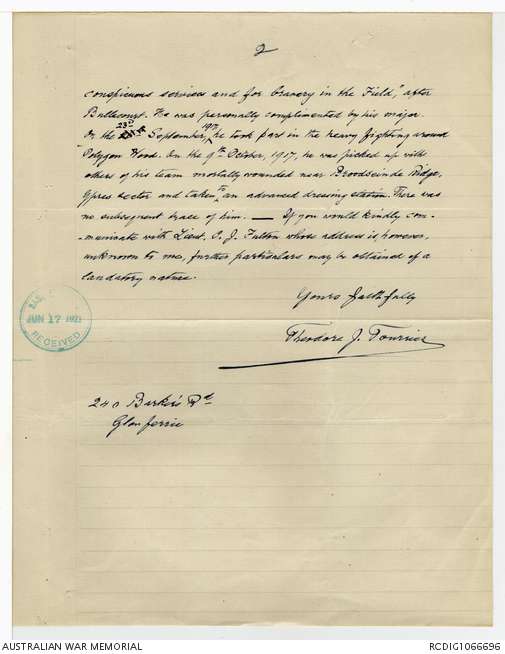 2
conspicuous services and for bravery in the Field," after
Bullecourt. He was personally complimented by his major.
On the 23rd September, 1917 he took part in the heavy fighting around
Polygon Wood. On the 9th October, 1917, he was picked up with
others of his team mortally wounded near Broodseinde Ridge,
Ypres sector and taken to an advanced dressing station. There was
no subsequent trace of him. — If you would kindly com-
-municate with Lieut. O. J. Fulton whose address is, however,
unknown to me, further particulars may be obtained of a
laudatory nature.
Yours faithfully
Theodore J. Fourrier
JUN 17 1921
RECEIVED
240 Barker's Rd
Glenferrie
AUSTRALIAN WAR MEMORIAL
RCDIG1066696